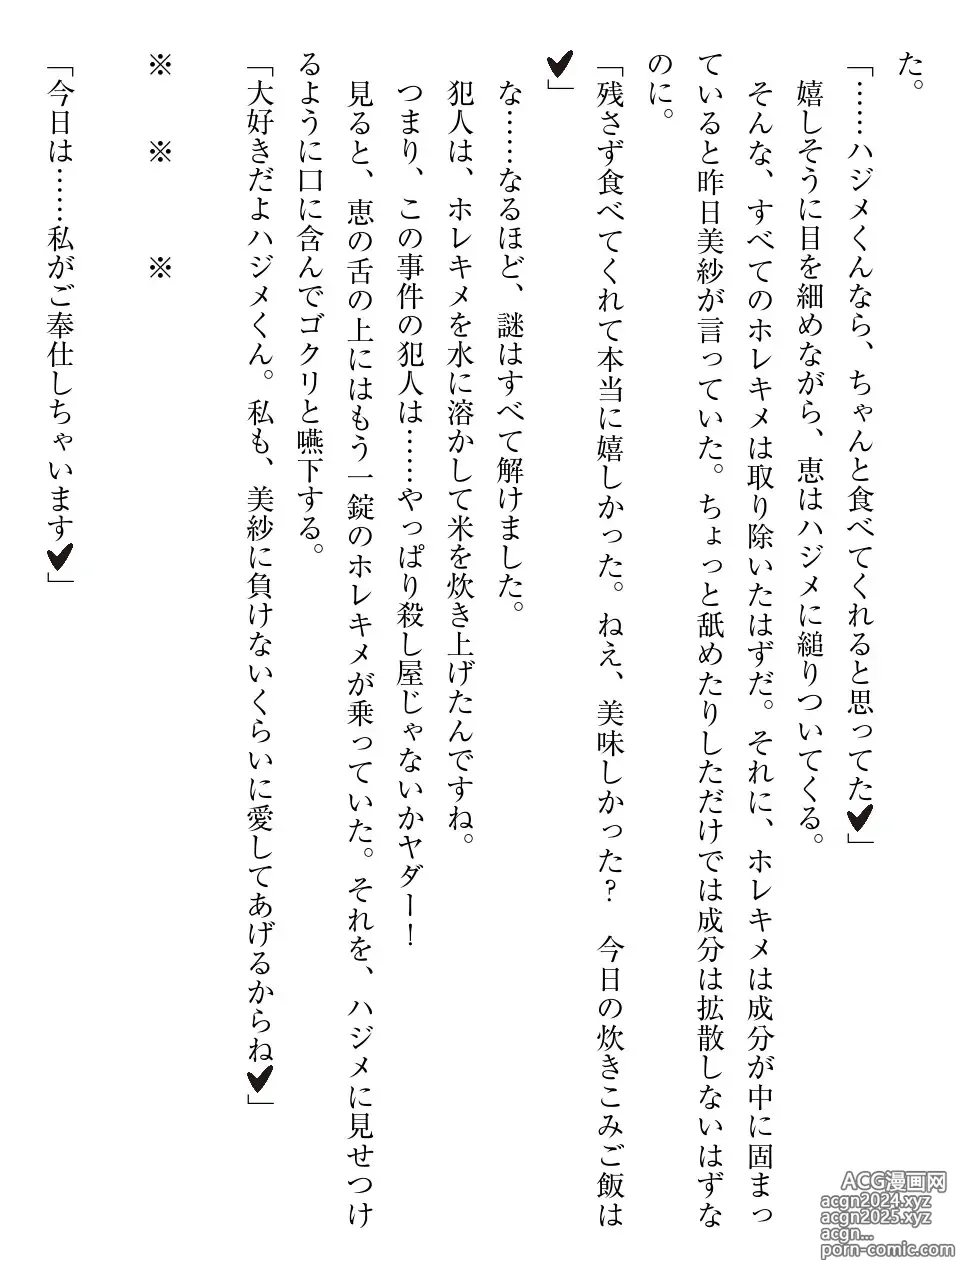 た。
「……ハジメくんなら、ちゃんと食べてくれると思ってた♥」
　嬉しそうに目を細めながら、恵はハジメに縋りついてくる。
　そんな、すべてのホレキメは取り除いたはずだ。それに、ホレキメは成分が中に固まっ
ていると昨日美紗が言っていた。ちょっと舐めたりしただけでは成分は拡散しないはずな
のに。
「残さず食べてくれて本当に嬉しかった。ねえ、美味しかった？　今日の炊きこみご飯は
♥」
　な……なるほど、謎はすべて解けました。
　犯人は、ホレキメを水に溶かして米を炊き上げたんですね。
　つまり、この事件の犯人は……やっぱり殺し屋じゃないかヤダー！
　見ると、恵の舌の上にはもう一錠のホレキメが乗っていた。それを、ハジメに見せつけ
るように口に含んでゴクリと嚥下する。
「大好きだよハジメくん。私も、美紗に負けないくらいに愛してあげるからね♥」
※　※　※
「今日は……私がご奉仕しちゃいます♥」
ACG漫画网
acgn2024.xyz
acgn2025.xyz
acgn...
porn-comic.com